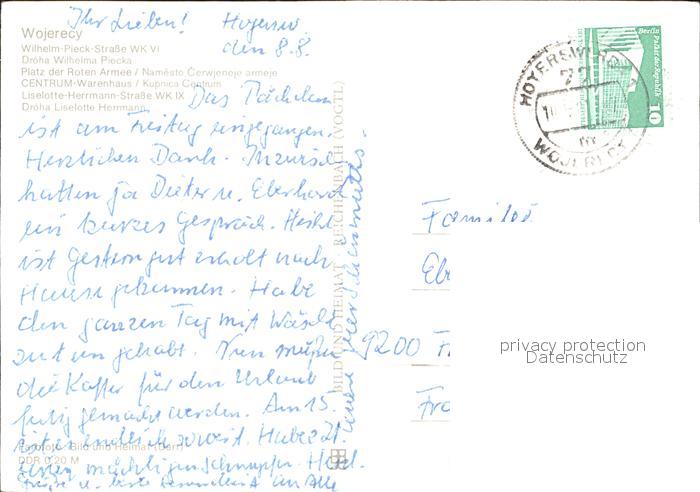 Ihr Lieben! Hoyersw.
den 8.8.
Wojerecy
Wilhelm-Pieck-Straße WK VI
Dróha Wilhelma Piecka
Platz der Roten Armee / Naměsto Čerwjeneje armeje
CENTRUM-Warenhaus / Kupnica Centrum
Liselotte-Herrmann-Straße WK IX
Dróha Liselotte Herrmann
Das Päckchen
ist am Freitag eingegangen.
Herzlichen Dank. Inzwisch
hatten ja Dieter u. Eberhard
ein kurzes Gespräch.
ist Gestern gut erholt nach
Hause gekommen. Habe
den ganzen Tag mit Wäsche
zu tun gehabt. Nun müssen
die Koffer für den Urlaub
fertig gemacht werden. Am 15.
ist es endlich soweit. Habe z.Zt.
einen mächtigen Schnupfen. Herzl.
Grüße u. beste an Alle
Farbfoto: Bild und Heimat
DDR 0,20 M
BILD UND HEIMAT REICHENBACH (VOGTL)
HOYERSWERDA
WOJERECY
Berlin Palast der Republik
10
Familie
Eb
9200 F
Fra
privacy protection
Datenschutz